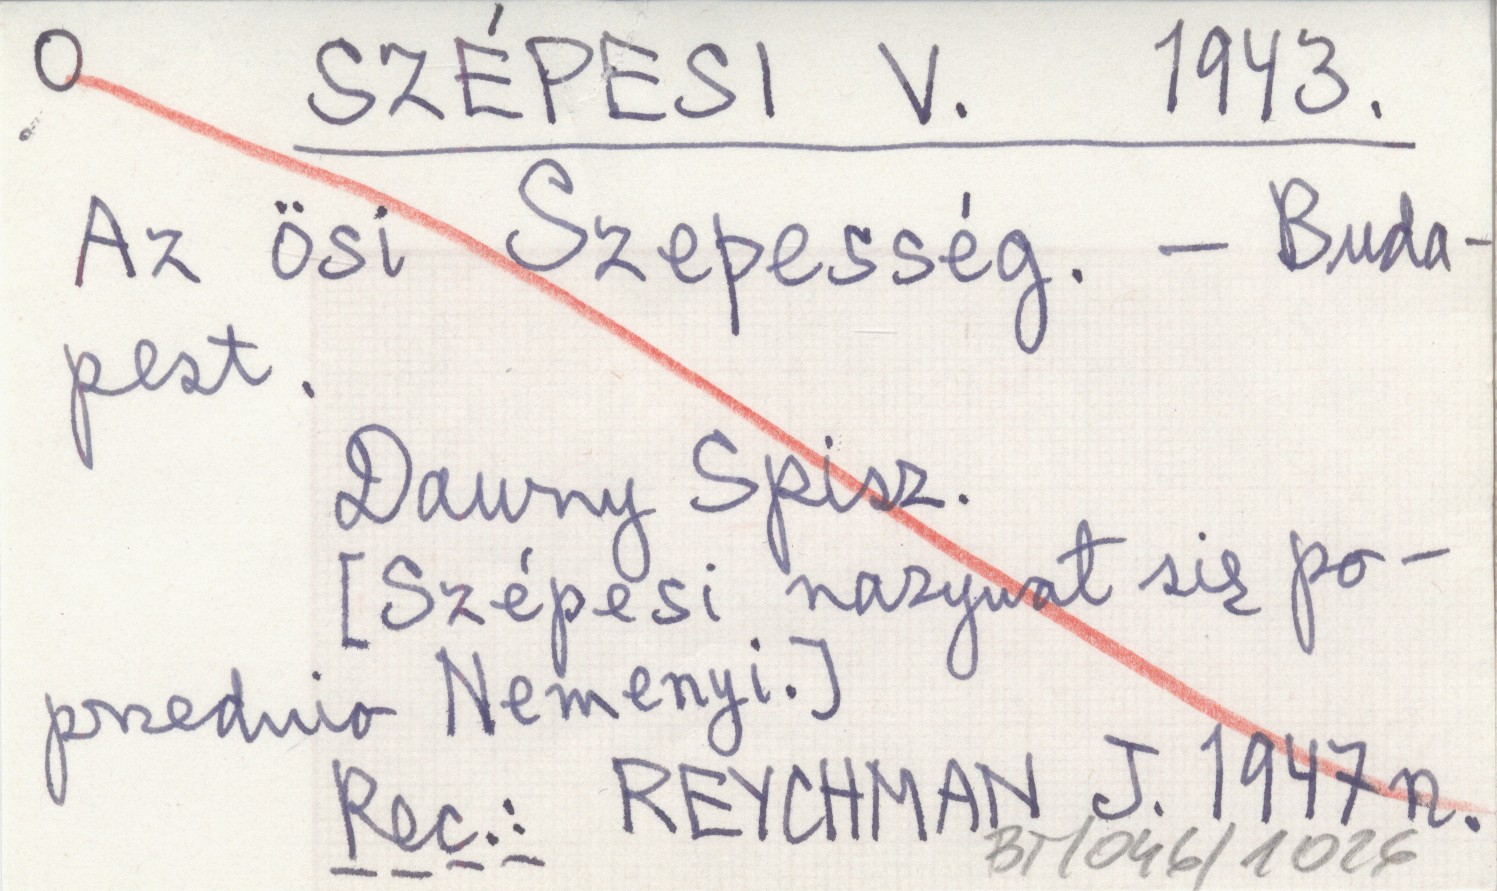 O SZÉPESI V. 1943.
Az ösi Szepesség. – Buda-
pest.
Dawny Spisz.
[Szépesi nazywał się po-
przednio Nemenyi.]
Rec.: REYCHMAN J. 1947n.
BT/046/1026